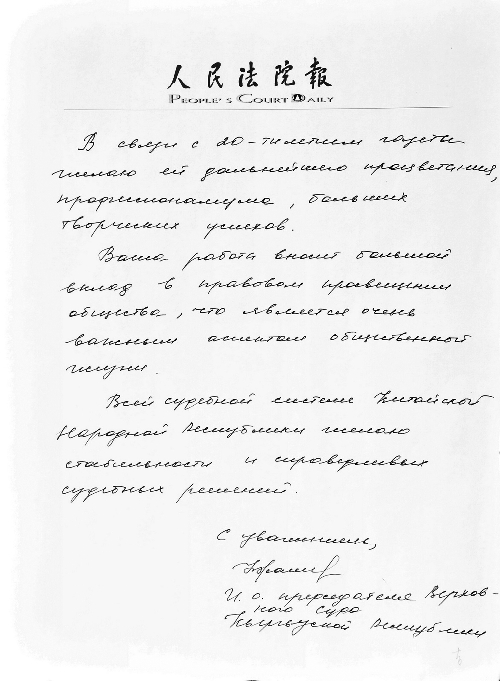 人民法院報
PEOPLE'S COURT DAILY
В связи с 20-тилетием газеты
желаю ей дальнейшего процветания,
профессионализма, больших
творческих успехов.
Ваша работа вносит большой
вклад в правовом просвещении
общества, что является очень
важным аспектом общественной
жизни.
Всей судебной системе Китайской
Народной Республики желаю
стабильности и справедливых
судебных решений.
С уважением,
И.о. председателя Верхов-
ного суда
Кыргызской Республики